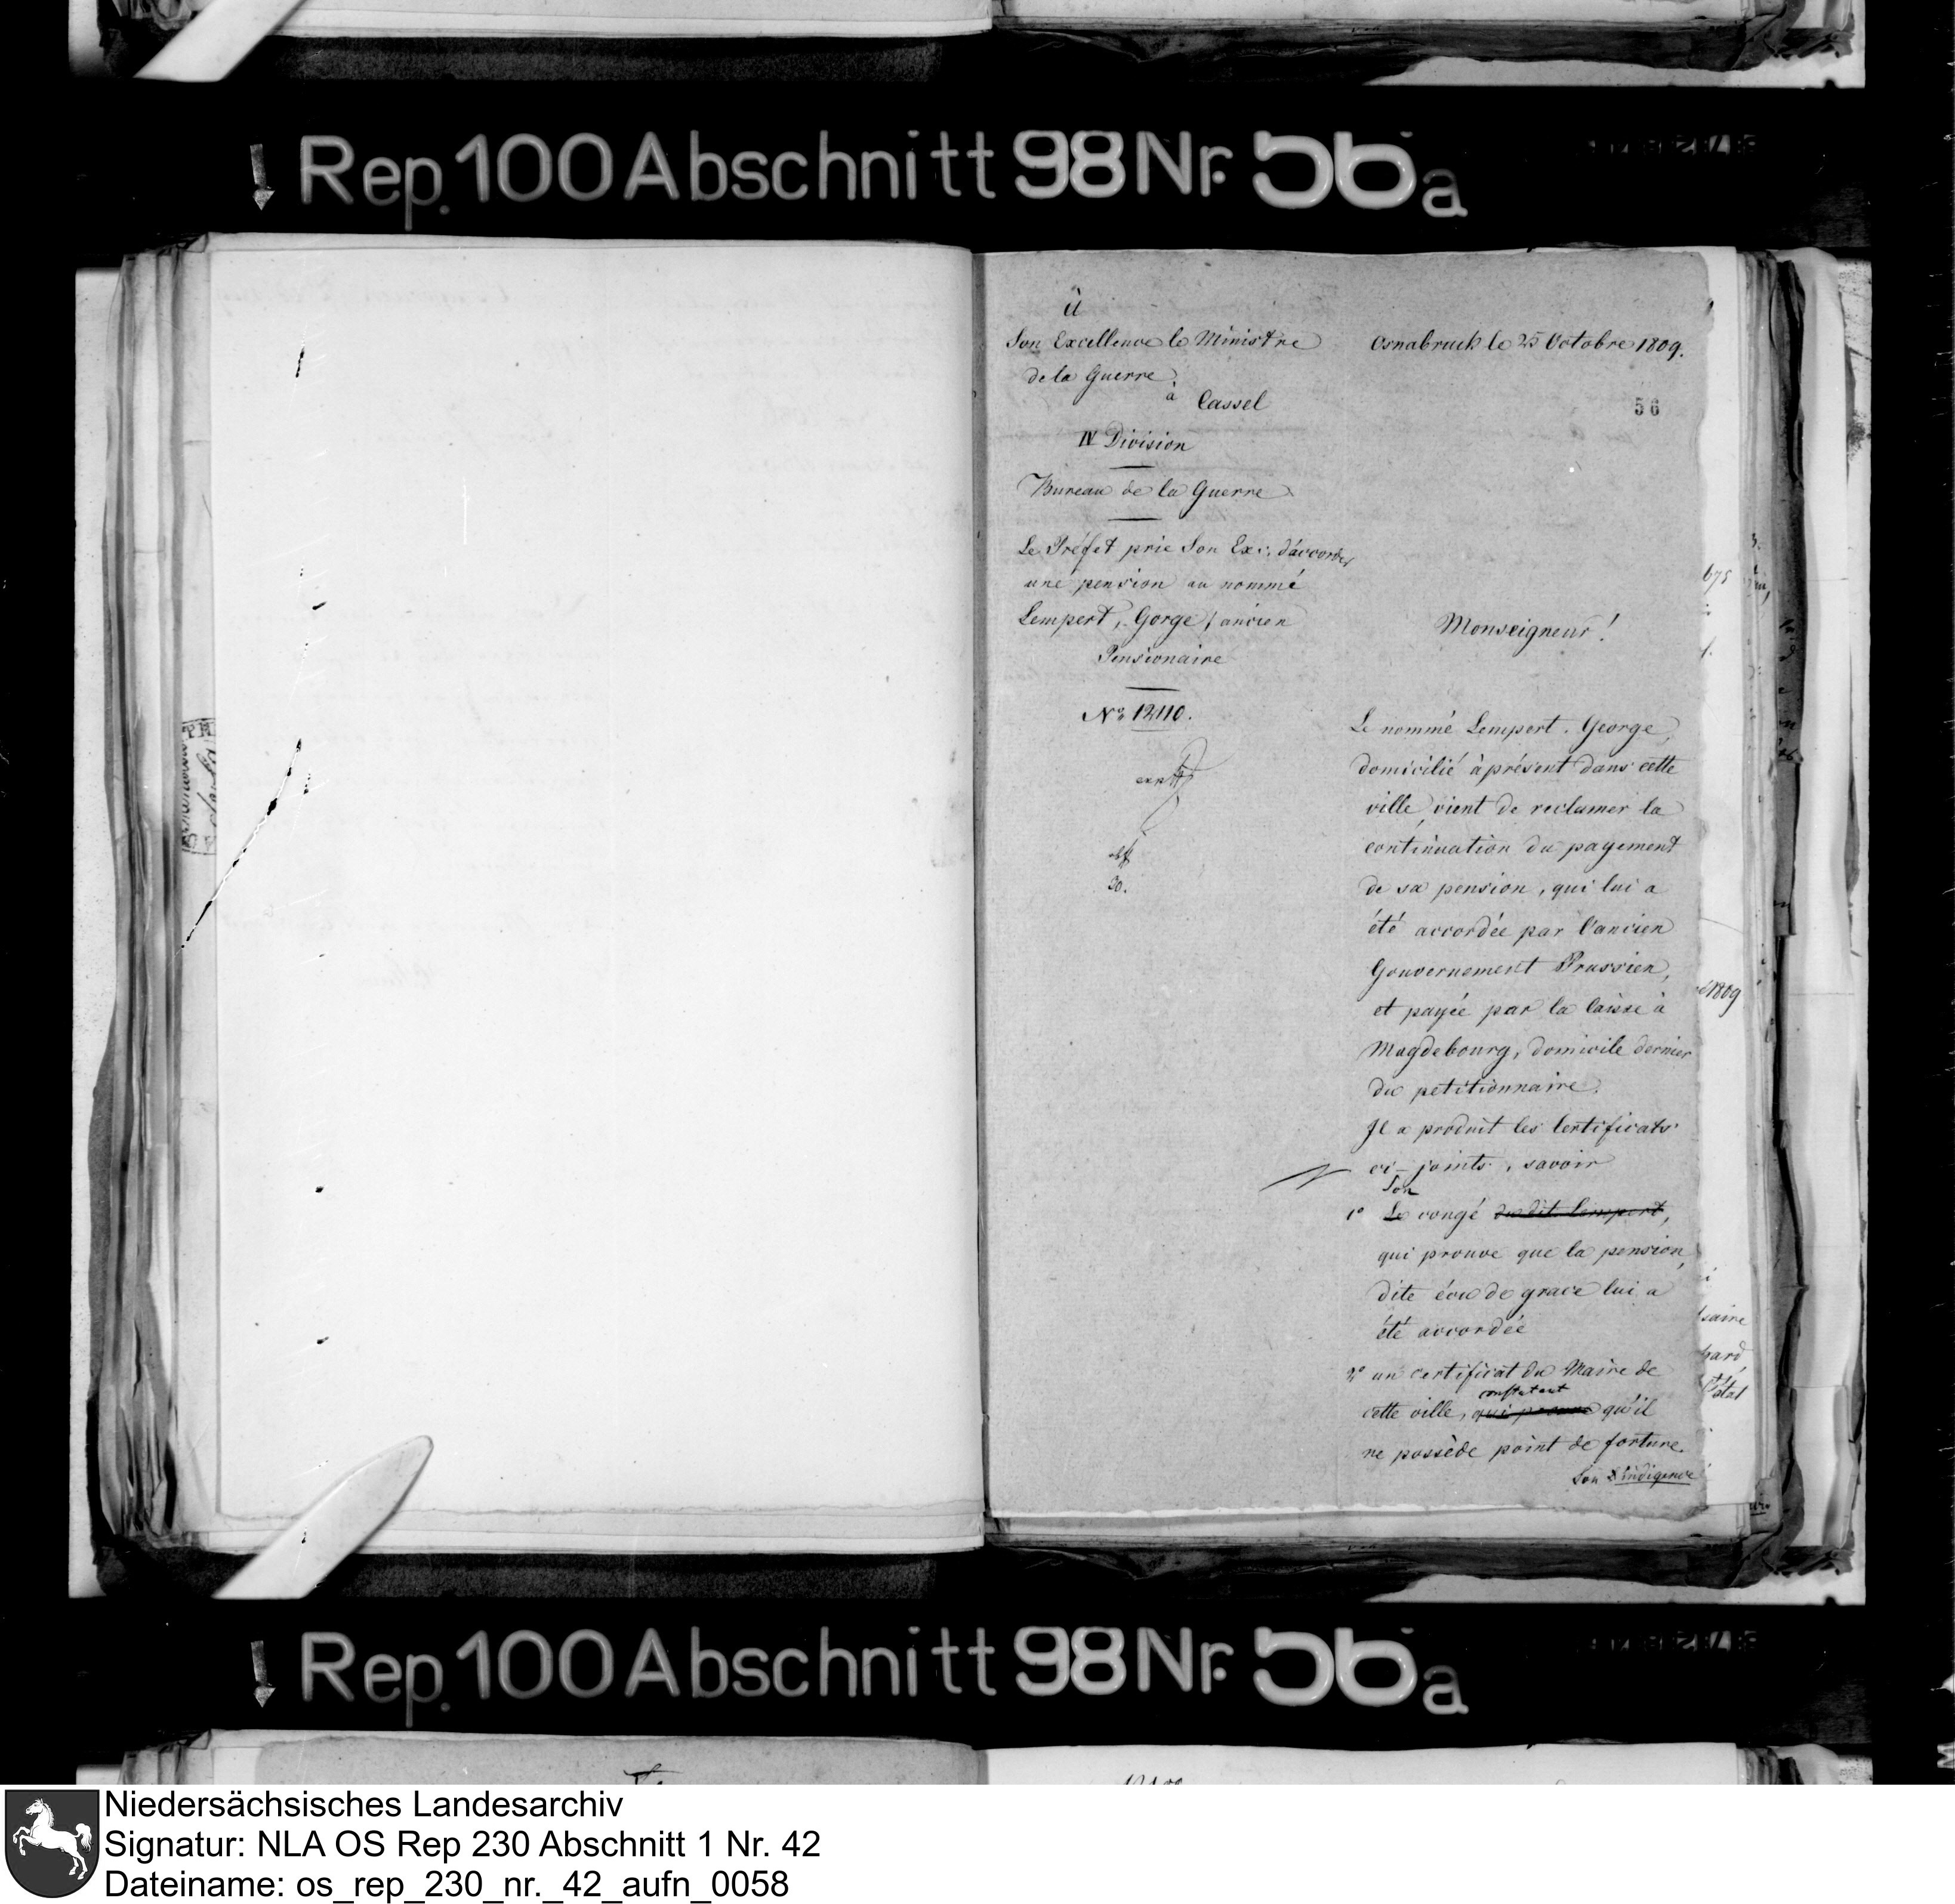 Rep. 100 Abschnitt 98 Nr. 56a
à
Son Excellence le Ministre
de la Guerre
à Cassel
IV Division
Bureau de la Guerre
Le Préfet prie Son Exc. d'accorder
une pension au nommé
Lempert, Gorge, ancien
Pensionaire
No. 12110.
30.
Osnabruck le 25 Octobre 1809.
56
Monseigneur!
Le nommé Lempert. George,
domicilié à présent dans cette
ville, vient de reclamer la
continuation du payement
de sa pension, qui lui a
été accordée par l'ancien
Gouvernement Prussien,
et payée par la Caisse à
Magdebourg, domicile dernier
du petitionnaire.
Il a produit les Certificats
ci-joints, savoir
Son
1o Le congé du dit Lempert,
qui prouve que la pension,
dite écu de grace lui a
été accordée
2o un certificat du Maire de
constatant
cette ville, qui prouve qu'il
ne possède point de fortune.
Son indigence
1809
saire
Rep. 100 Abschnitt 98 Nr. 56a
Niedersächsisches Landesarchiv
Signatur: NLA OS Rep 230 Abschnitt 1 Nr. 42
Dateiname: os_rep_230_nr._42_aufn_0058